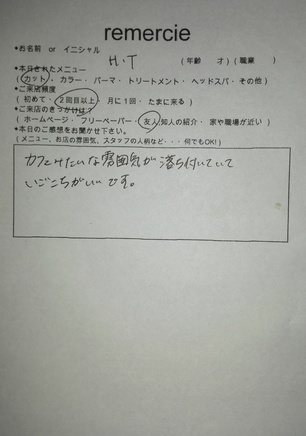 remercie
*お名前 or イニシャル
H.T (年齢 才)(職業 )
*本日されたメニュー
(カット・カラー・パーマ・トリートメント・ヘッドスパ・その他)
*ご来店頻度
(初めて・2回目以上・月に1回・たまに来る)
*ご来店のきっかけは?
(ホームページ・フリーペーパー・友人知人の紹介・家や職場が近い)
*本日のご感想をお聞かせ下さい。
(メニュー、お店の雰囲気、スタッフの人柄など・・・何でもOK!)
カフェみたいな雰囲気が落ち付いていて
いごこちがいいです。